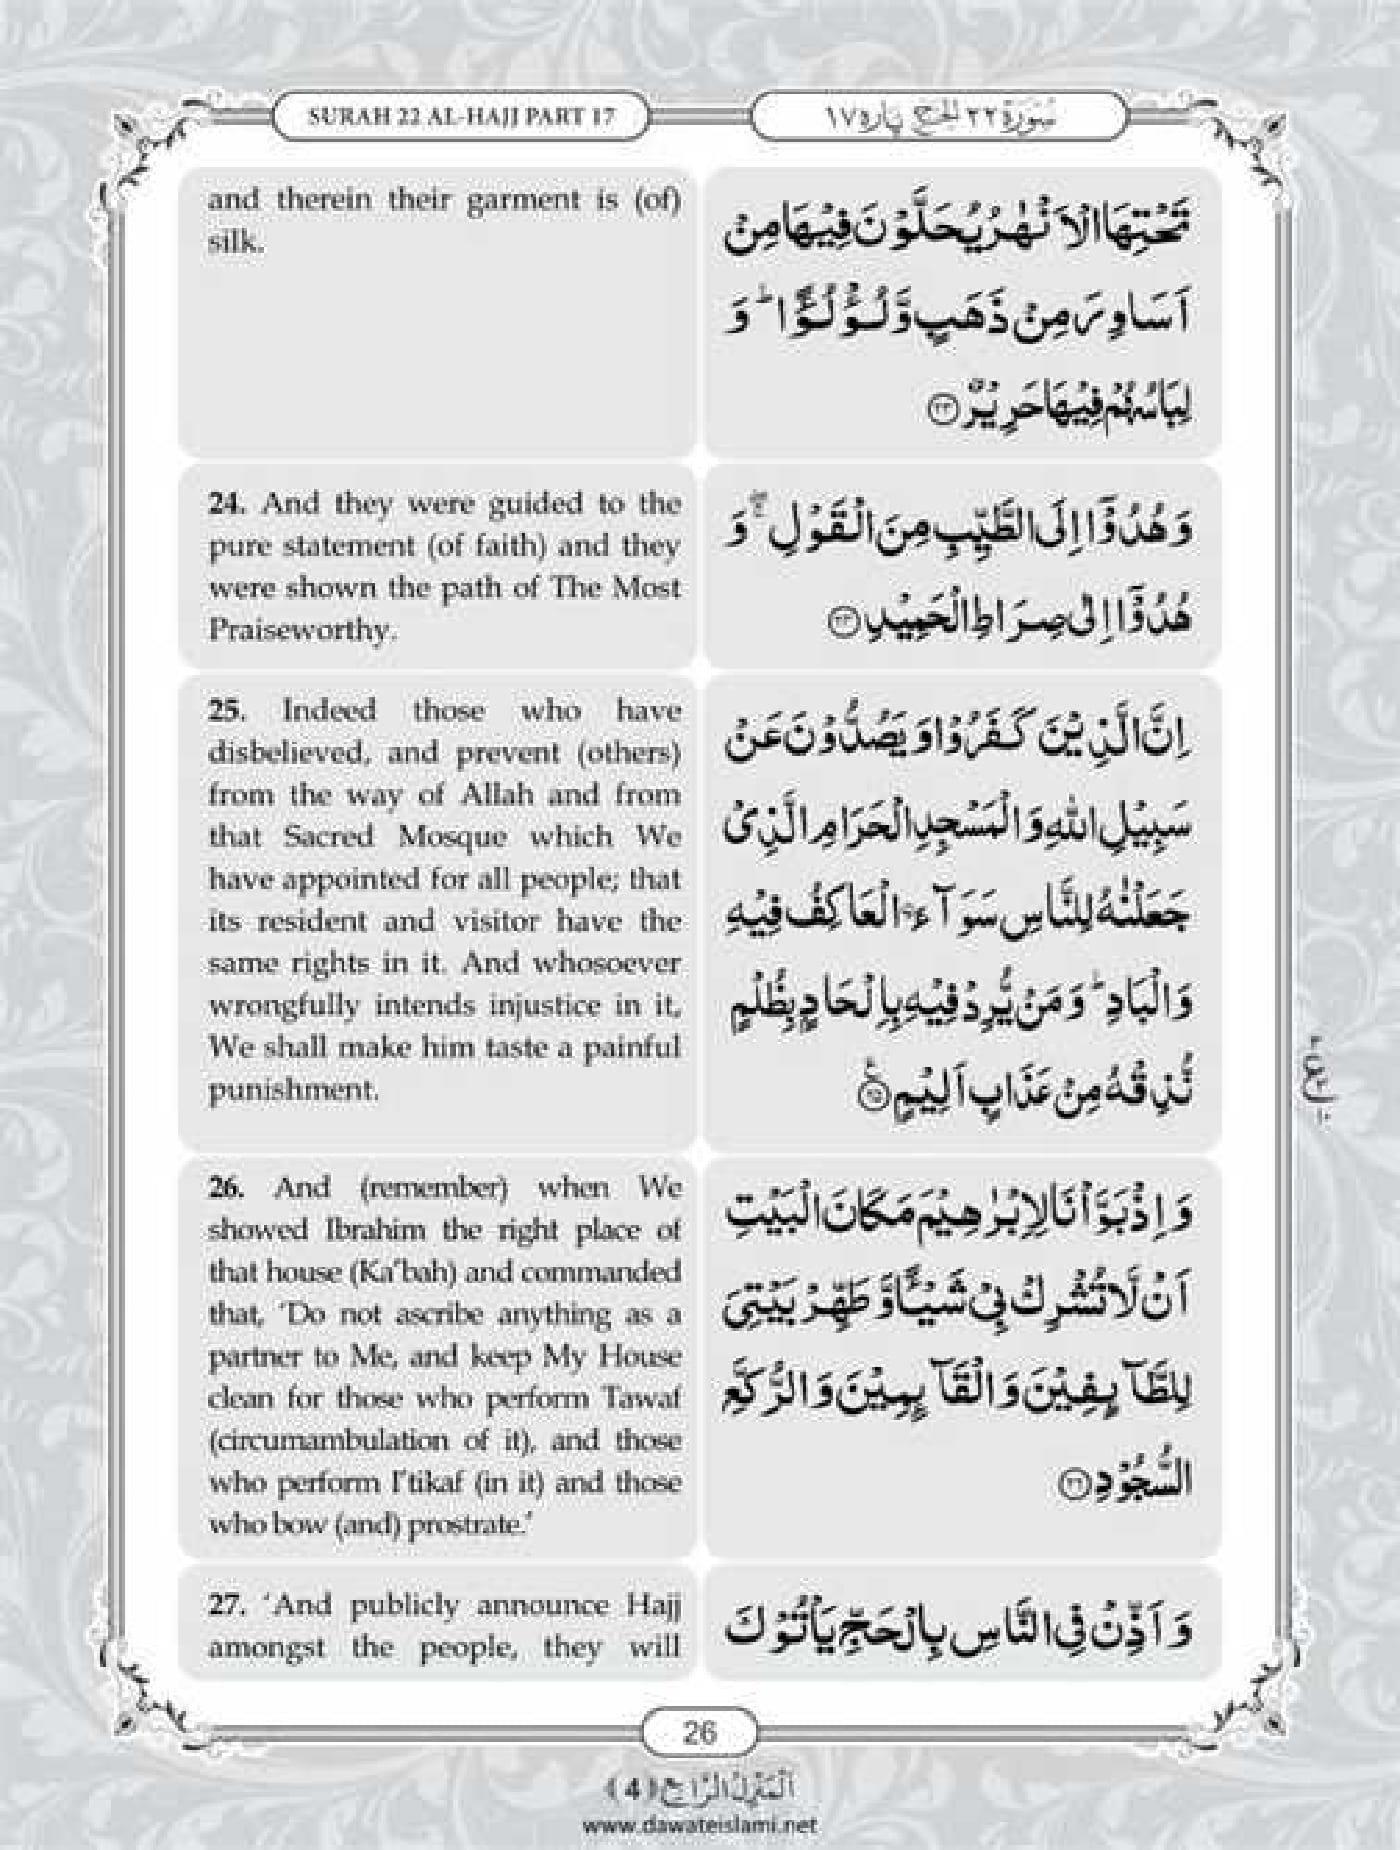 SURAH 22 AL-HAJJ PART 17
سُوْرَةُ ٢٢ الحج پارہ ١٧
and therein their garment is (of)
silk.
تَحْتِهَا الْاَنْهٰرُ یُحَلَّوْنَ فِیْهَا مِنْ
اَسَاوِرَ مِنْ ذَهَبٍ وَّ لُؤْلُؤًاؕ وَ
لِبَاسُهُمْ فِیْهَا حَرِیْرٌ ۝۲۳
24. And they were guided to the
pure statement (of faith) and they
were shown the path of The Most
Praiseworthy.
وَ هُدُوْۤا اِلَى الطَّیِّبِ مِنَ الْقَوْلِ ۚۖ وَ
هُدُوْۤا اِلٰى صِرَاطِ الْحَمِیْدِ ۝۲۴
25. Indeed those who have
disbelieved, and prevent (others)
from the way of Allah and from
that Sacred Mosque which We
have appointed for all people; that
its resident and visitor have the
same rights in it. And whosoever
wrongfully intends injustice in it,
We shall make him taste a painful
punishment.
اِنَّ الَّذِیْنَ كَفَرُوْا وَ یَصُدُّوْنَ عَنْ
سَبِیْلِ اللّٰهِ وَ الْمَسْجِدِ الْحَرَامِ الَّذِیْ
جَعَلْنٰهُ لِلنَّاسِ سَوَآءَ ﰳ الْعَاكِفُ فِیْهِ
وَ الْبَادِؕ وَ مَنْ یُّرِدْ فِیْهِ بِاِلْحَادٍۭ بِظُلْمٍ
نُّذِقْهُ مِنْ عَذَابٍ اَلِیْمٍ ۝۲۵
26. And (remember) when We
showed Ibrahim the right place of
that house (Ka’bah) and commanded
that, ‘Do not ascribe anything as a
partner to Me, and keep My House
clean for those who perform Tawaf
(circumambulation of it), and those
who perform I’tikaf (in it) and those
who bow (and) prostrate.’
وَ اِذْ بَوَّاْنَا لِاِبْرٰهِیْمَ مَكَانَ الْبَیْتِ
اَنْ لَّا تُشْرِكْ بِیْ شَیْــٴًـا وَّ طَهِّرْ بَیْتِیَ
لِلطَّآىٕفِیْنَ وَ الْقَآىٕمِیْنَ وَ الرُّكَّعِ
السُّجُوْدِ ۝۲۶
27. ‘And publicly announce Hajj
amongst the people, they will
وَ اَذِّنْ فِی النَّاسِ بِالْحَجِّ یَاْتُوْكَ
26
اَلْمَنْزِلُ الرَّابِع (4)
www.dawateislami.net